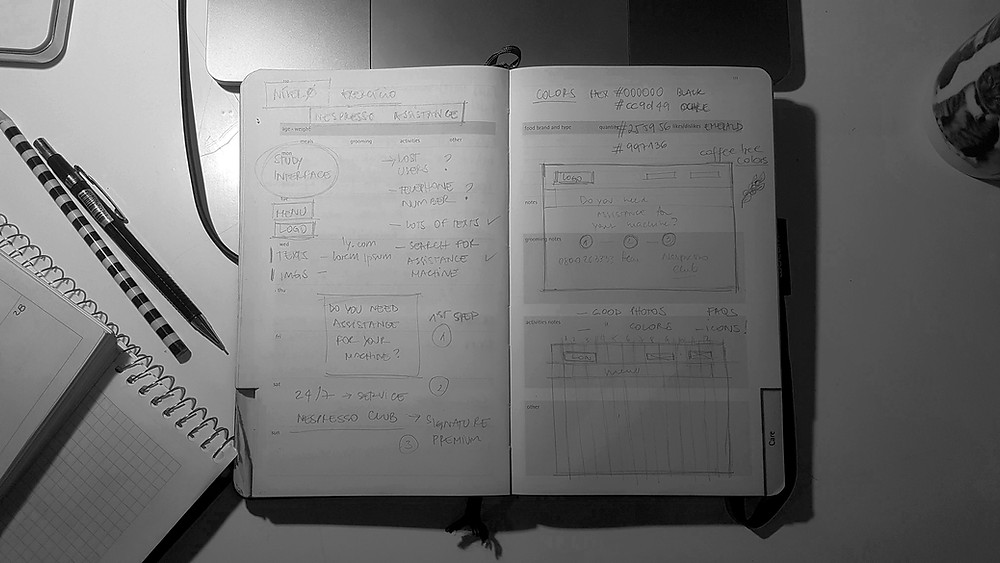 NESPRESSO ASSISTANCE
age - weight
meals grooming activities other
mon
STUDY
INTERFACE
→ LOST
USERS ?
– TELEPHONE
NUMBER ?
MENU
LOGO
– LOTS OF TEXTS ✓
wed
TEXTS – lorem ipsum
IMGS –
– SEARCH FOR
ASSISTANCE ✓
MACHINE
thu
DO YOU NEED
ASSISTANCE
FOR YOUR
MACHINE?
1ST STEP
1
fri
sat
24/7 → SERVICE
2
NESPRESSO CLUB → SIGNATURE
PREMIUM
3
sun
COLORS HEX #000000 BLACK
#cc9d49 OCHRE
food brand and type
EMERALD
coffee tree
colors
LOGO
notes
Do you need
assistance for
your machine?
grooming notes
1 – 2 – 3
Nespresso
Club
– GOOD PHOTOS FAQS
activities notes
– " COLORS – ICONS!
menu
other
Care
28